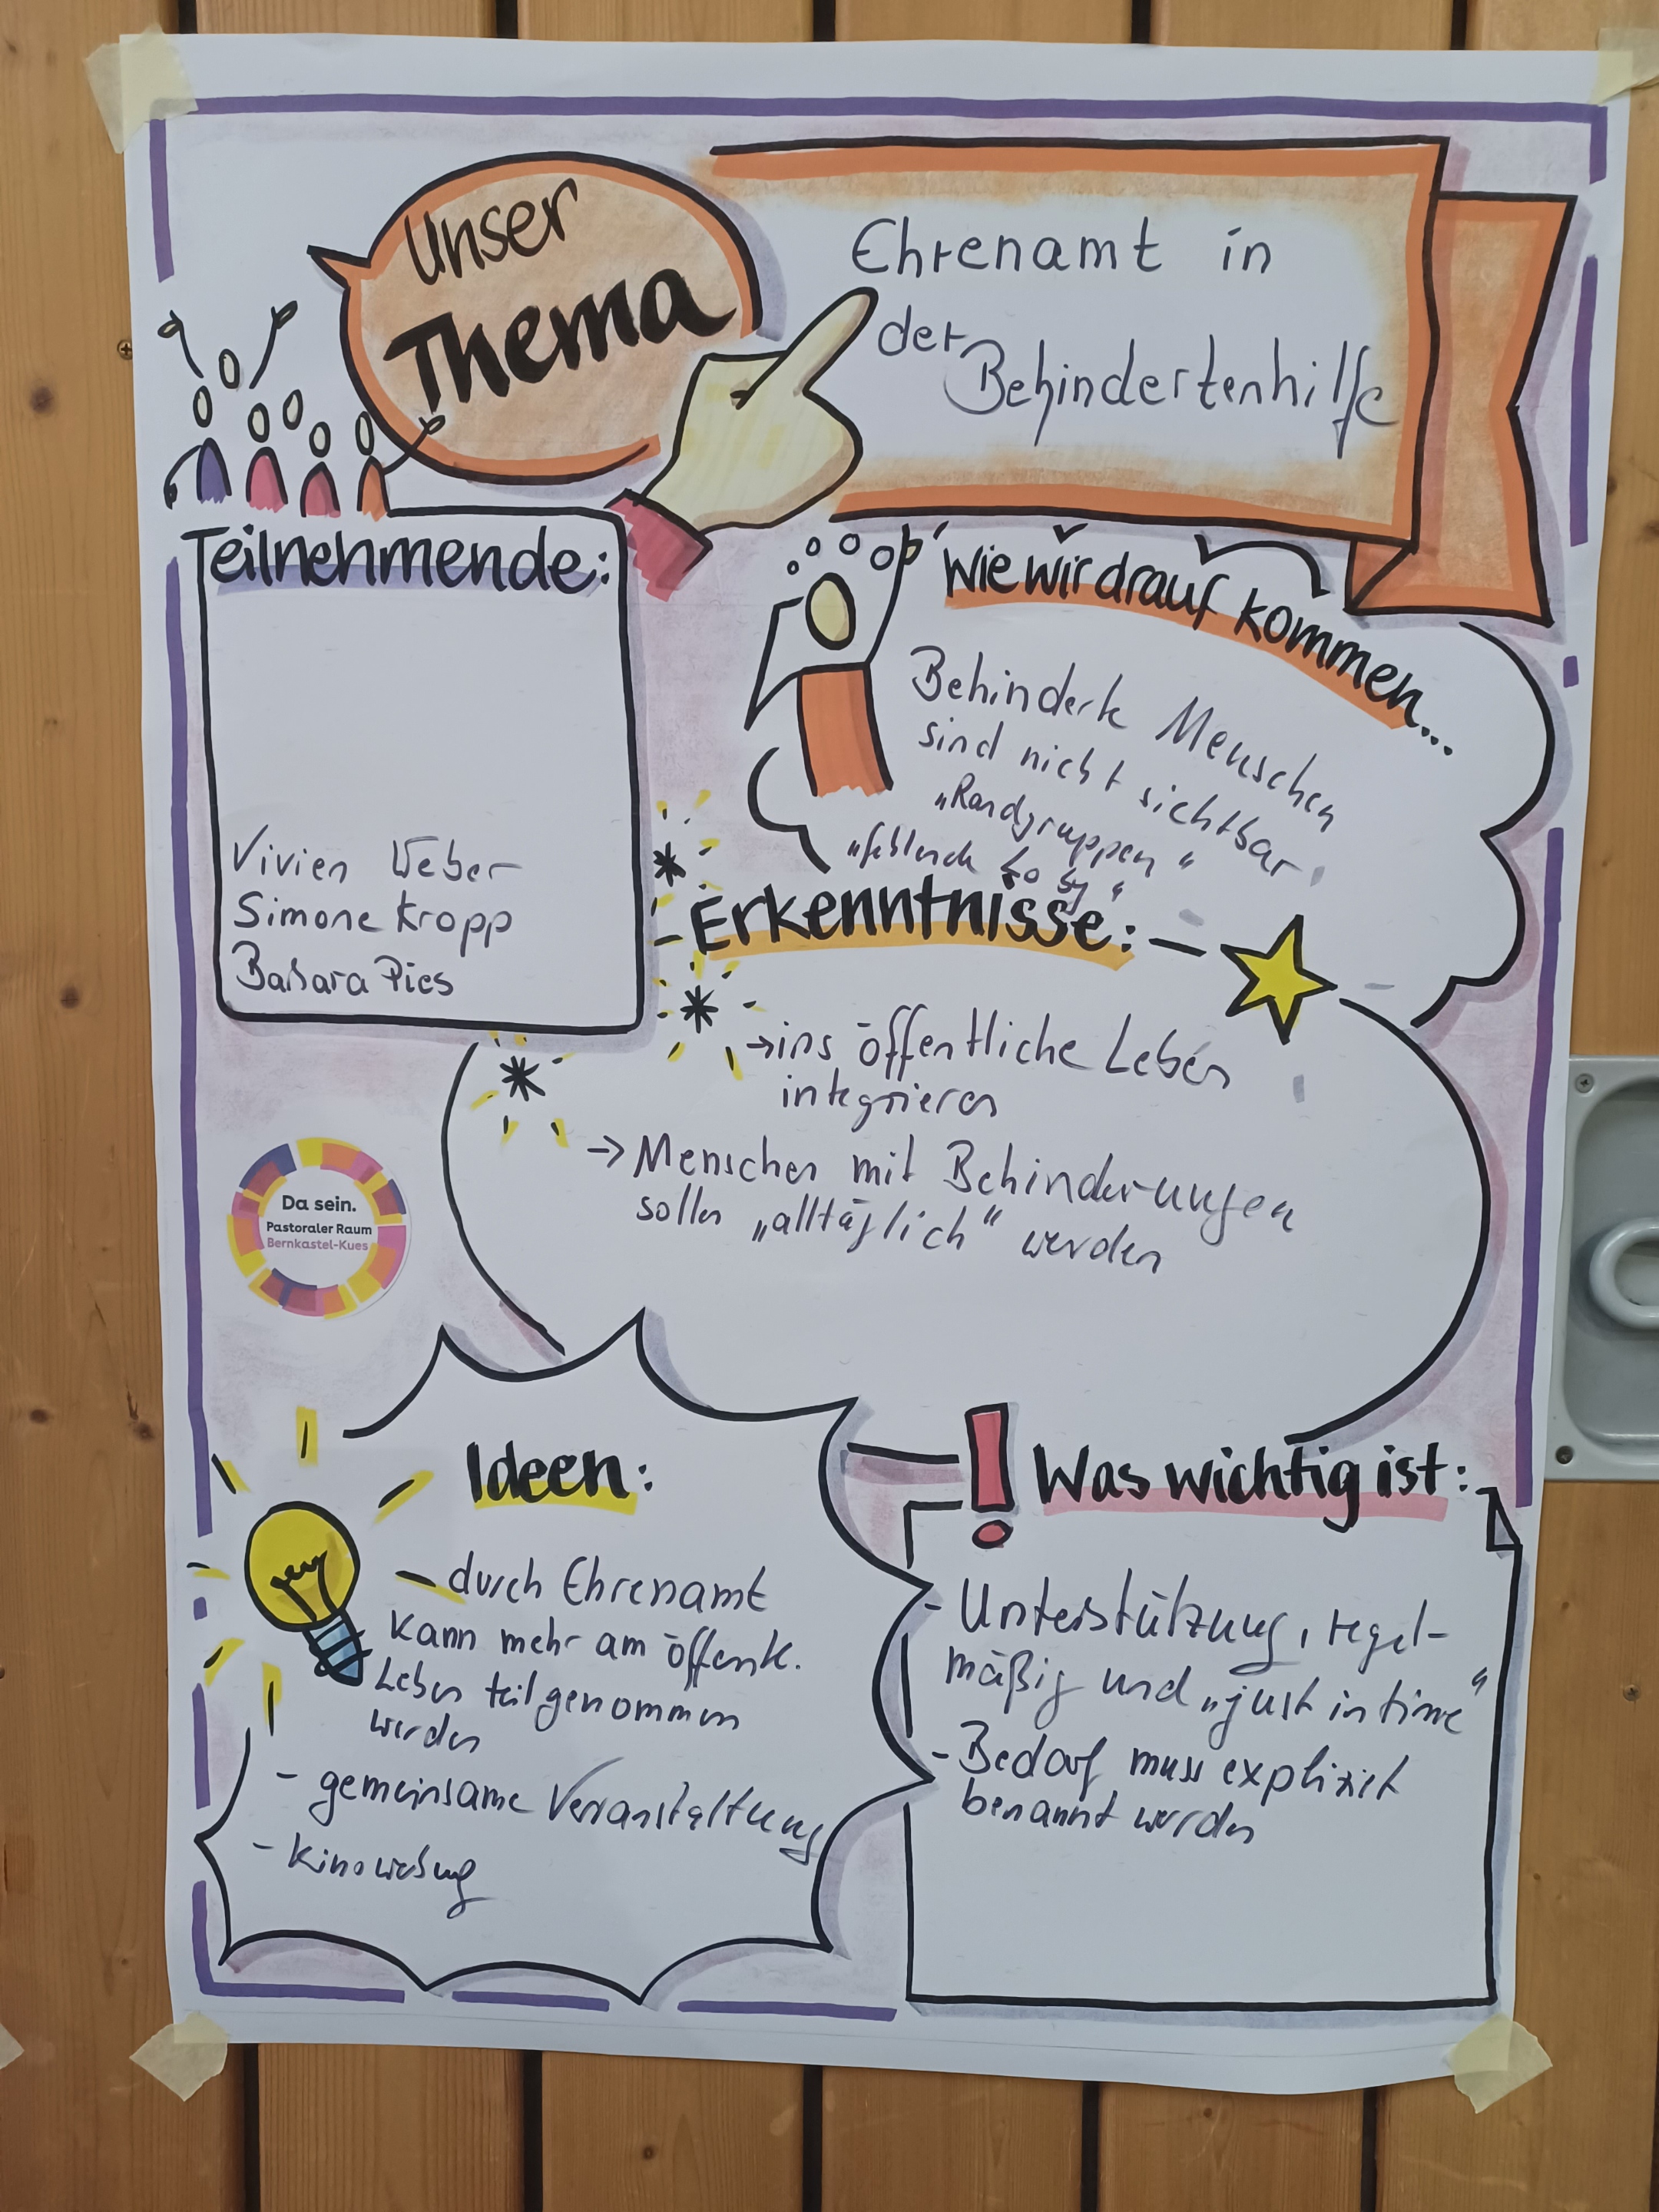 Unser
Thema
Ehrenamt in
der Behindertenhilfe
Teilnehmende:
Vivien Weber
Simone Kropp
Barbara Pies
Wie wir drauf kommen...
Behinderte Menschen
sind nicht sichtbar
„Randgruppen"
„fehlende Lobby"
Erkenntnisse:
→ ins öffentliche Leben
integrieren
→ Menschen mit Behinderungen
sollen „alltäglich" werden
Da sein.
Pastoraler Raum
Bernkastel-Kues
Ideen:
- durch Ehrenamt
kann mehr am öffentl.
Leben teilgenommen
werden
- gemeinsame Veranstaltung
- Kinowerbung
Was wichtig ist:
- Unterstützung, regel-
mäßig und „just in time"
- Bedarf muss explizit
benannt werden